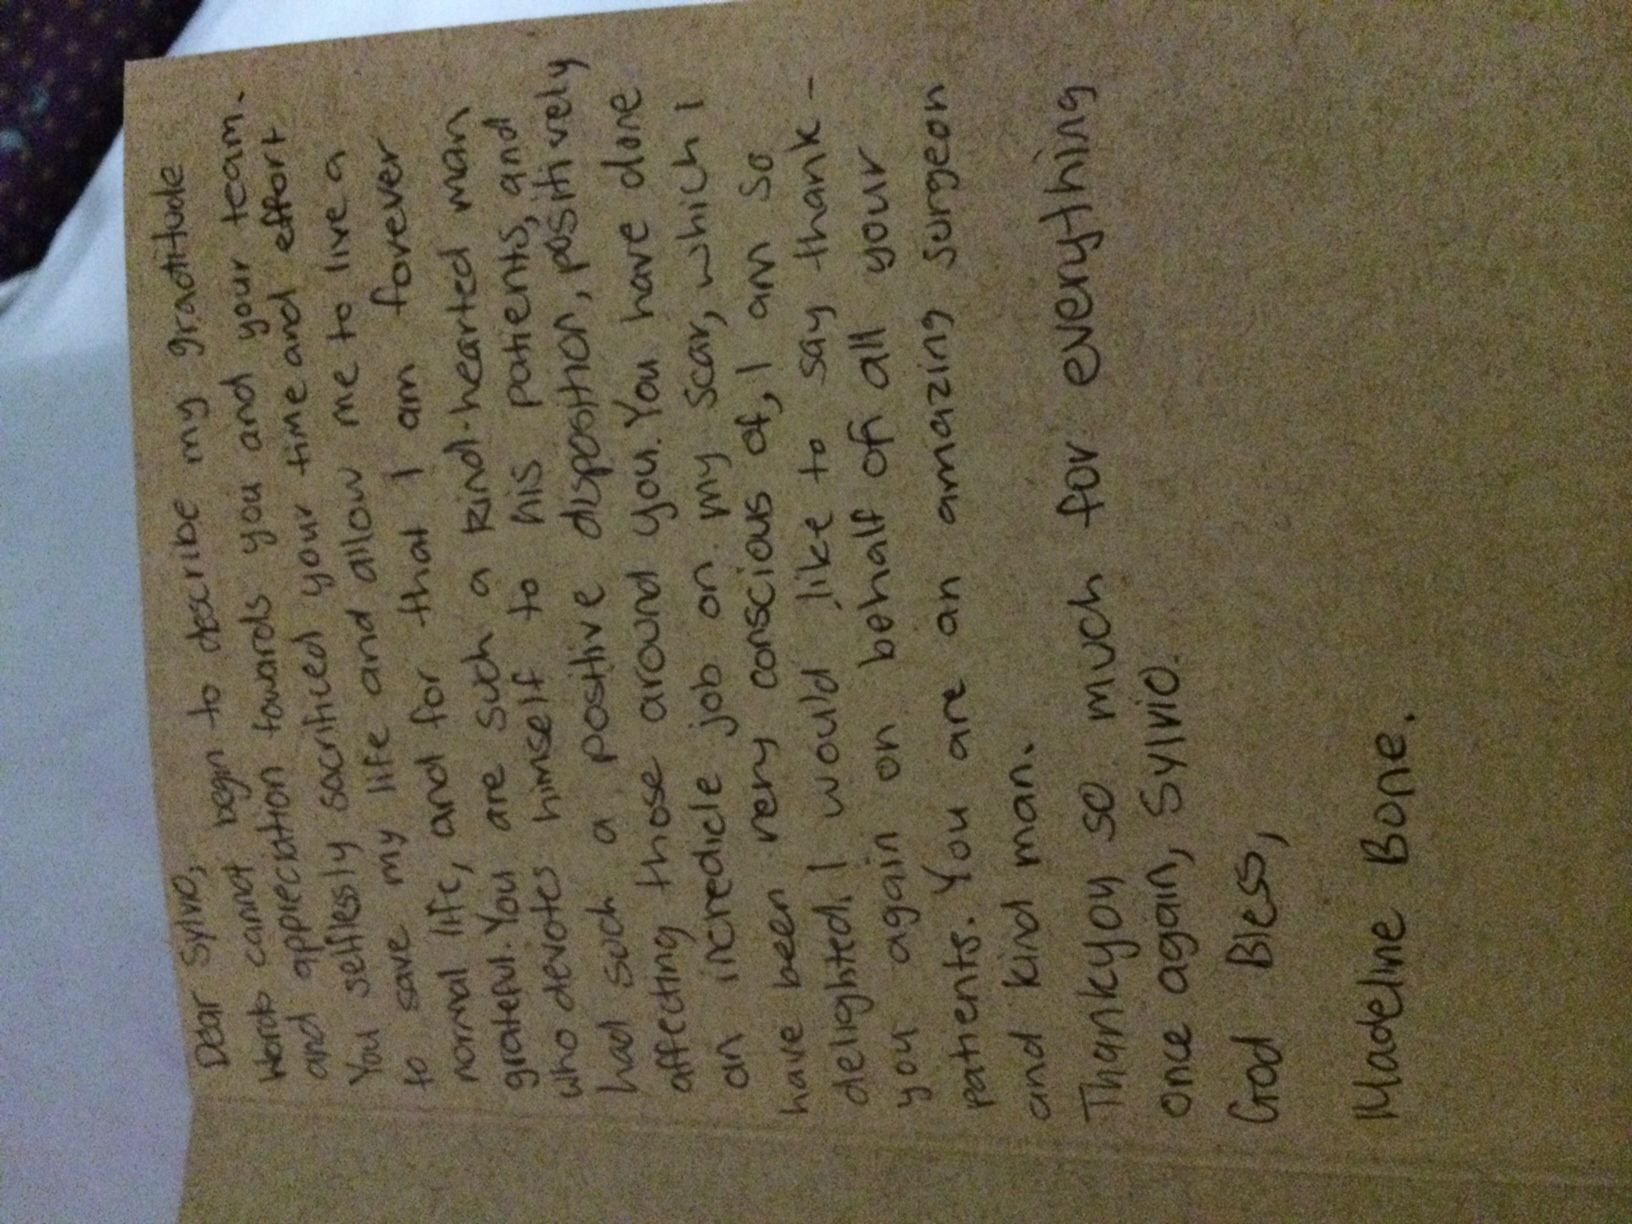 Dear Sylvio,
Words cannot begin to describe my gratitude
and appreciation towards you and your team.
You selflessly sacrificed your time and effort
to save my life and allow me to live a
normal life, and for that I am forever
grateful. You are such a kind-hearted man
who devotes himself to his patients, and
had such a positive disposition, positively
affecting those around you. You have done
an incredicle job on my scar, which I
have been very conscious of, I am so
delighted. I would like to say thank-
you again on behalf of all your
patients. You are an amazing surgeon
and kind man.
Thankyou so much for everything
once again, Sylvio.
God Bless,
Madeline Bone.